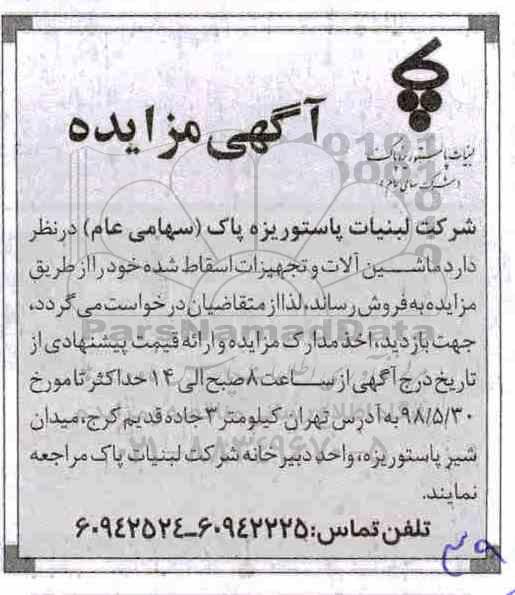 آگهی مزایده
لبنیات پاستوریزه پاک
(شرکت سهامی عام)
شرکت لبنیات پاستوریزه پاک (سهامی عام) درنظر
دارد ماشین آلات و تجهیزات اسقاط شده خود را از طریق
مزایده به فروش رساند، لذا از متقاضیان درخواست می گردد،
جهت بازدید، اخذ مدارک مزایده و ارائه قیمت پیشنهادی از
تاریخ درج آگهی از ساعت ۸ صبح الی ۱۴ حداکثر تا مورخ
۹۸/۵/۳۰ به آدرس تهران کیلومتر ۳ جاده قدیم کرج، میدان
شیر پاستوریزه، واحد دبیرخانه شرکت لبنیات پاک مراجعه
نمایند.
تلفن تماس: ۶۰۹۴۲۲۲۵-۶۰۹۴۲۵۲۴
ParsNamadData